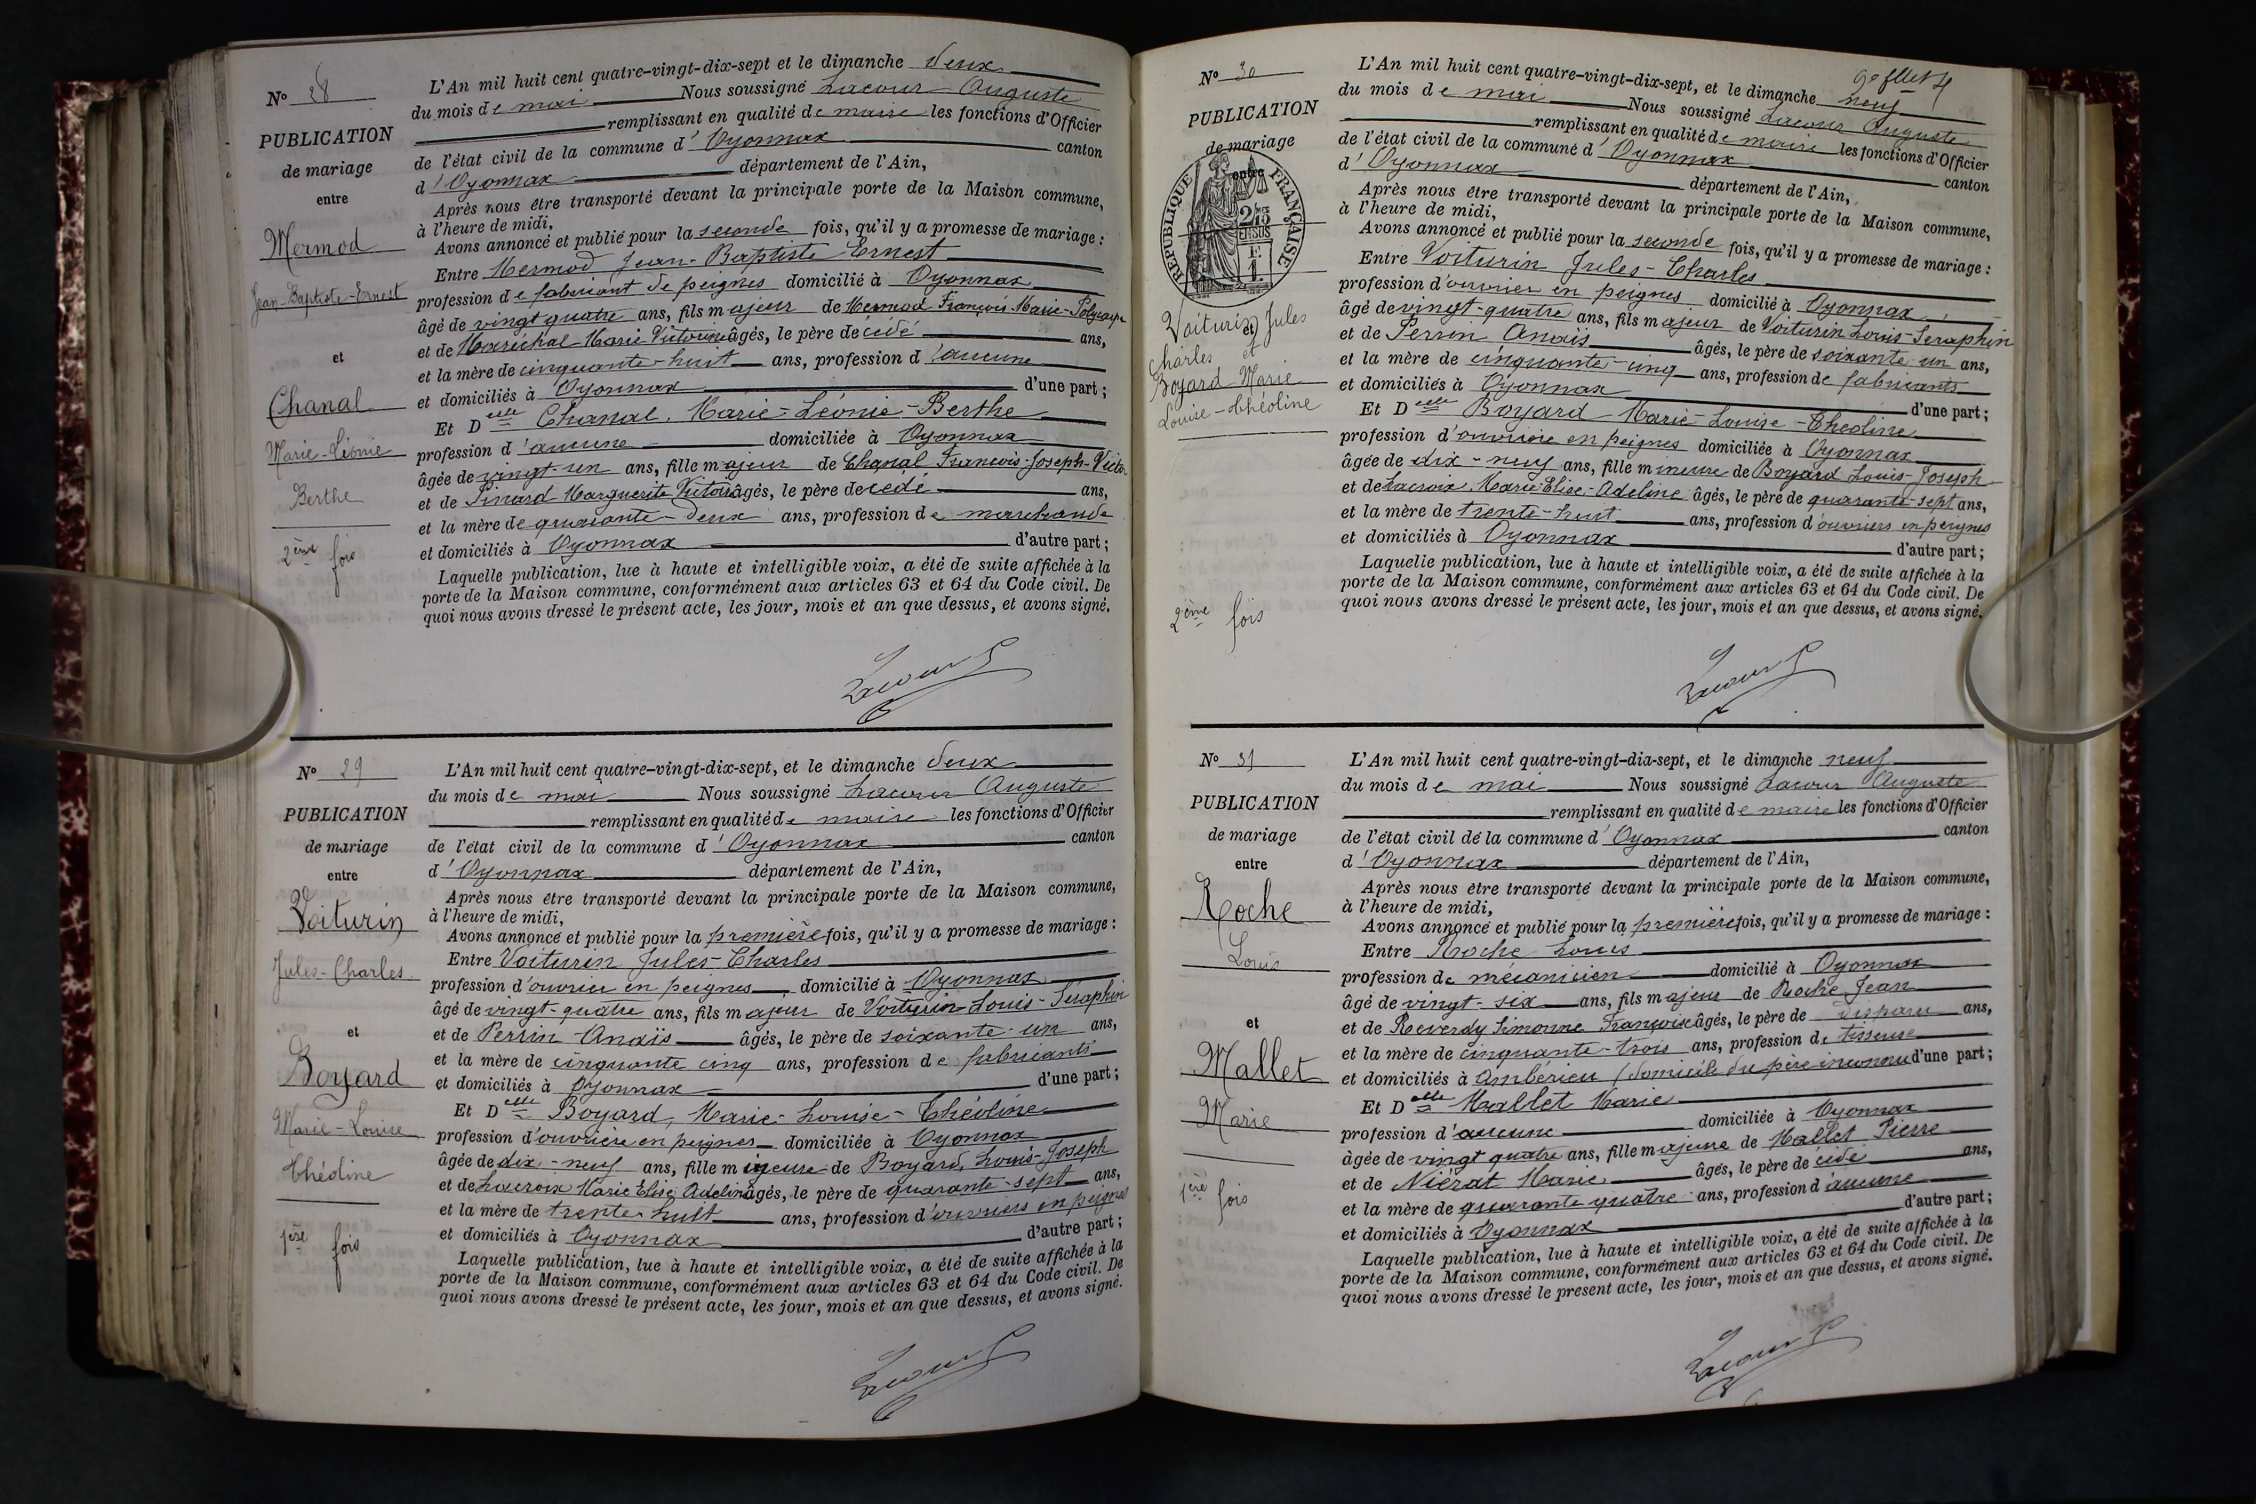 N° 28
PUBLICATION
de mariage
entre
Mermod
Jean-Baptiste-Ernest
et
Chanal
Marie-Léonie
Berthe
2ème fois
L'An mil huit cent quatre-vingt-dix-sept et le dimanche deux
du mois de mai Nous soussigné Lacour Auguste
remplissant en qualité de maire les fonctions d'Officier
de l'état civil de la commune d'Oyonnax canton
d'Oyonnax département de l'Ain,
Après nous être transporté devant la principale porte de la Maison commune,
à l'heure de midi,
Avons annoncé et publié pour la seconde fois, qu'il y a promesse de mariage :
Entre Mermod Jean-Baptiste Ernest
profession de fabricant de peignes domicilié à Oyonnax
âgé de vingt quatre ans, fils majeur de Mermod François Marie-Polycarpe
et de Maréchal Marie Victorine âgés, le père décédé ans,
et la mère de cinquante-huit ans, profession d'aucune
et domiciliés à Oyonnax d'une part ;
Et Delle Chanal, Marie-Léonie-Berthe
profession d'aucune domiciliée à Oyonnax
âgée de vingt-un ans, fille majeur de Chanal François-Joseph-Victor
et de Pinard Marguerite Victoire âgés, le père décédé ans,
et la mère de quarante-deux ans, profession de marchande
et domiciliés à Oyonnax d'autre part ;
Laquelle publication, lue à haute et intelligible voix, a été de suite affichée à la
porte de la Maison commune, conformément aux articles 63 et 64 du Code civil. De
quoi nous avons dressé le présent acte, les jour, mois et an que dessus, et avons signé.
Lacour
N° 29
PUBLICATION
de mariage
entre
Voiturin
Jules-Charles
et
Boyard
Marie-Louise
Théoline
1ère fois
L'An mil huit cent quatre-vingt-dix-sept, et le dimanche deux
du mois de mai Nous soussigné Lacour Auguste
remplissant en qualité de maire les fonctions d'Officier
de l'état civil de la commune d'Oyonnax canton
d'Oyonnax département de l'Ain,
Après nous être transporté devant la principale porte de la Maison commune,
à l'heure de midi,
Avons annoncé et publié pour la première fois, qu'il y a promesse de mariage :
Entre Voiturin Jules-Charles
profession d'ouvrier en peignes domicilié à Oyonnax
âgé de vingt-quatre ans, fils majeur de Voiturin Louis-Séraphin
et de Perrin Anaïs âgés, le père de soixante-un ans,
et la mère de cinquante cinq ans, profession de fabricants
et domiciliés à Oyonnax d'une part ;
Et Delle Boyard, Marie-Louise-Théoline
profession d'ouvrière en peignes domiciliée à Oyonnax
âgée de dix-neuf ans, fille mineure de Boyard, Louis-Joseph
et de Lacroix Marie Elise Adeline âgés, le père de quarante-sept ans,
et la mère de trente huit ans, profession d'ouvriers en peignes
et domiciliés à Oyonnax d'autre part ;
Laquelle publication, lue à haute et intelligible voix, a été de suite affichée à la
porte de la Maison commune, conformément aux articles 63 et 64 du Code civil. De
quoi nous avons dressé le présent acte, les jour, mois et an que dessus, et avons signé.
Lacour
9e fllet
N° 30
PUBLICATION
de mariage
entre
RÉPUBLIQUE FRANÇAISE
Voiturin Jules
Charles et
Boyard Marie
Louise-Théoline
2ème fois
L'An mil huit cent quatre-vingt-dix-sept, et le dimanche neuf
du mois de mai Nous soussigné Lacour Auguste
remplissant en qualité de maire les fonctions d'Officier
de l'état civil de la commune d'Oyonnax canton
d'Oyonnax département de l'Ain,
Après nous être transporté devant la principale porte de la Maison commune,
à l'heure de midi,
Avons annoncé et publié pour la seconde fois, qu'il y a promesse de mariage :
Entre Voiturin Jules-Charles
profession d'ouvrier en peignes domicilié à Oyonnax
âgé de vingt-quatre ans, fils majeur de Voiturin Louis-Seraphin
et de Perrin Anaïs âgés, le père de soixante-un ans,
et la mère de cinquante-cinq ans, profession de fabricants
et domiciliés à Oyonnax d'une part ;
Et Delle Boyard Marie-Louise-Théoline
profession d'ouvrière en peignes domiciliée à Oyonnax
âgée de dix-neuf ans, fille mineure de Boyard Louis-Joseph
et de Lacroix Marie-Elise-Adeline âgés, le père de quarante-sept ans,
et la mère de trente-huit ans, profession d'ouvriers en peignes
et domiciliés à Oyonnax d'autre part ;
Laquelle publication, lue à haute et intelligible voix, a été de suite affichée à la
porte de la Maison commune, conformément aux articles 63 et 64 du Code civil. De
quoi nous avons dressé le présent acte, les jour, mois et an que dessus, et avons signé.
Lacour
N° 31
PUBLICATION
de mariage
entre
Roche
Louis
et
Mallet
Marie
1ère fois
L'An mil huit cent quatre-vingt-dix-sept, et le dimanche neuf
du mois de mai Nous soussigné Lacour Auguste
remplissant en qualité de maire les fonctions d'Officier
de l'état civil de la commune d'Oyonnax canton
d'Oyonnax département de l'Ain,
Après nous être transporté devant la principale porte de la Maison commune,
à l'heure de midi,
Avons annoncé et publié pour la première fois, qu'il y a promesse de mariage :
Entre Roche Louis
profession de mécanicien domicilié à Oyonnax
âgé de vingt-six ans, fils majeur de Roche Jean
et de Reverdy Simonne Françoise âgés, le père de disparu ans,
et la mère de cinquante-trois ans, profession de tisseuse
et domiciliés à Ambérieu (domicile du père inconnu d'une part ;
Et Delle Mallet Marie
profession d'aucune domiciliée à Oyonnax
âgée de vingt quatre ans, fille majeure de Mallet Pierre
et de Niérat Marie âgés, le père décédé ans,
et la mère de quarante quatre ans, profession d'aucune
et domiciliés à Oyonnax d'autre part ;
Laquelle publication, lue à haute et intelligible voix, a été de suite affichée à la
porte de la Maison commune, conformément aux articles 63 et 64 du Code civil. De
quoi nous avons dressé le present acte, les jour, mois et an que dessus, et avons signé.
Lacour